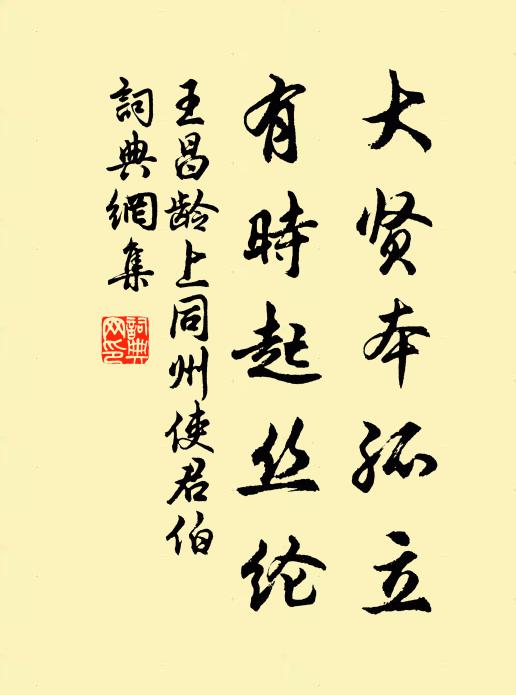 大贤本孤立
有時起丝纶
王昌龄上同州使君伯
詞典網集
詞典网印